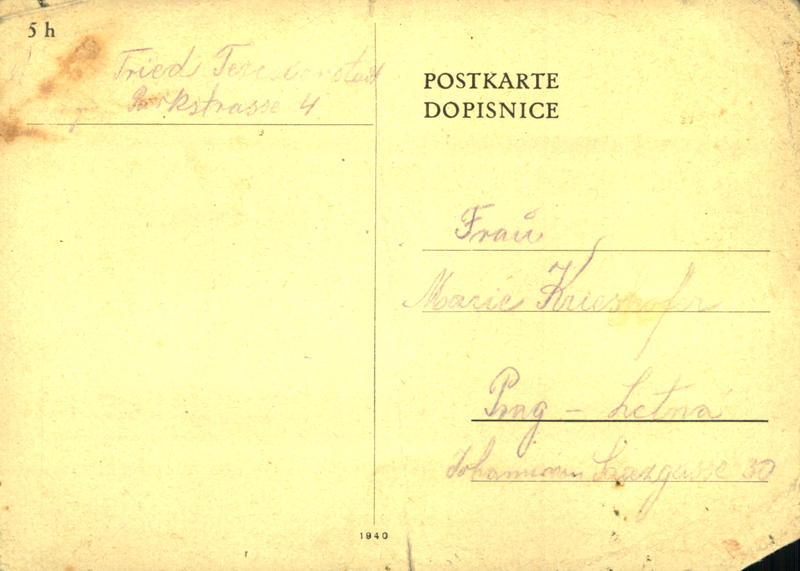 5 h
Fried Theresienstadt
Parkstrasse 4
POSTKARTE
DOPISNICE
Frau
Marie
Prag - Letná
30
1940